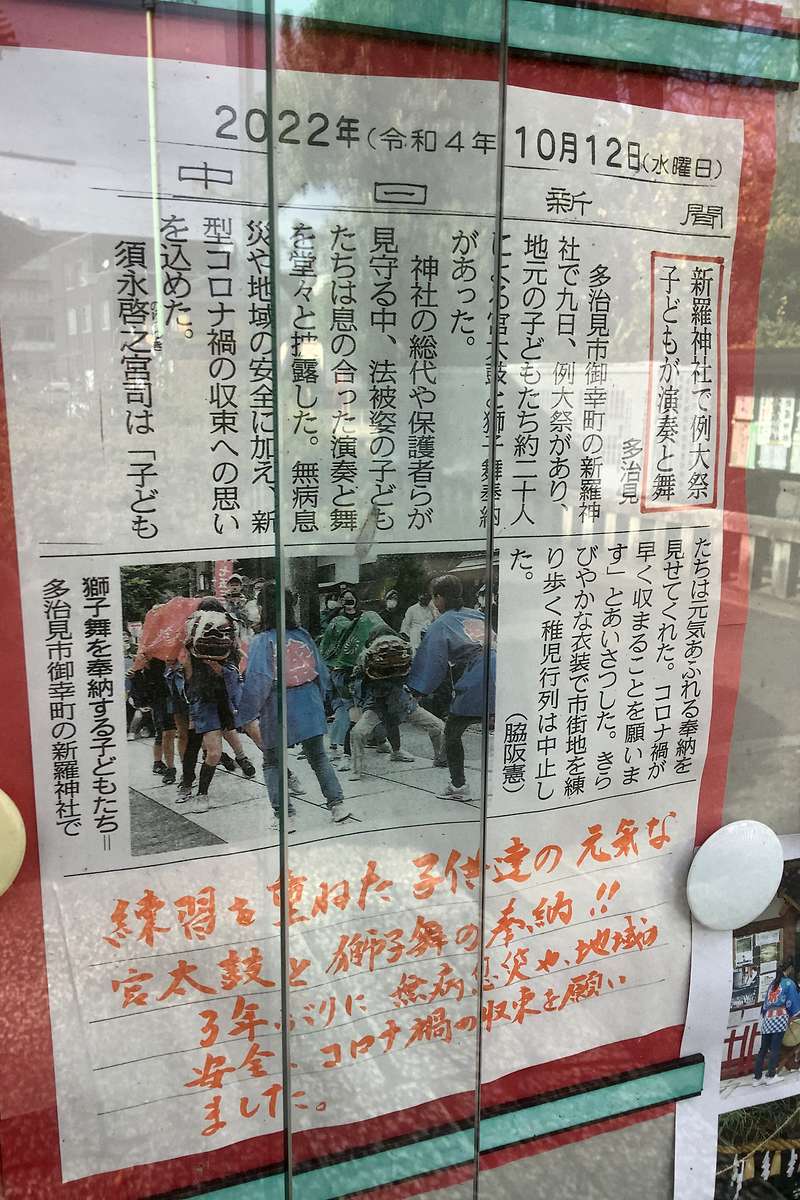 2022年(令和4年 10月12日(水曜日)
中日新聞
新羅神社で例大祭
子どもが演奏と舞
多治見
多治見市御幸町の新羅神
社で九日、例大祭があり、
地元の子どもたち約二十人
による宮太鼓と獅子舞奉納
があった。
神社の総代や保護者らが
見守る中、法被姿の子ども
たちは息の合った演奏と舞
を堂々と披露した。無病息
災や地域の安全に加え、新
型コロナ禍の収束への思い
を込めた。
須永啓之宮司は「子ども
たちは元気あふれる奉納を
見せてくれた。コロナ禍が
早く収まることを願いま
す」とあいさつした。きら
びやかな衣装で市街地を練
り歩く稚児行列は中止し
た。
(脇阪憲)
獅子舞を奉納する子どもたち=
多治見市御幸町の新羅神社で
練習を重ねた子供達の元気な
宮太鼓と獅子舞の奉納!!
3年ぶりに無病息災や、地域の
安全、コロナ禍の収束を願い
ました。